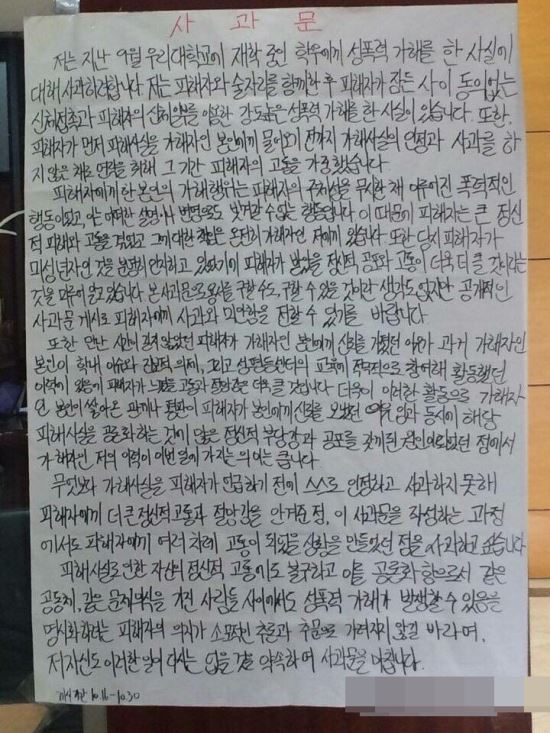 사 과 문
저는 지난 9월 우리대학교에 재학 중인 학우에게 성폭력 가해를 한 사실에
대해 사과하려합니다. 저는 피해자와 술자리를 함께한 후 피해자가 잠든 사이 동의없는
신체접촉과 피해자의 신체 일부를 강도높은 성폭력 가해를 한 사실이 있습니다. 또한,
피해자가 먼저 피해사실을 가해자인 본인에게 물어오기 전까지 가해사실의 인정과 사과를 하
지 않은 채로 연락을 취해 그 기간 피해자의 고통을 가중했습니다.
피해자에게 한 본인의 가해행위는 피해자의 주체성을 무시한 채 이루어진 폭력적인
행동이었고, 이는 어떠한 설명이나 변명으로도 빗겨갈 수 없는 행동입니다. 이 때문에 피해자는 큰 정신
적 피해와 고통을 겪었고 그에 대한 책임은 온전히 가해자인 저에게 있습니다. 또한 당시 피해자가
미성년자인 것을 분명히 인지하고 있었기에 피해자가 받았을 정신적 공포와 고통이 더욱 더 클 것이라는
것을 알고 있습니다. 본 사과문으로 용서를 구할 수도, 구할 수 있을 것이란 생각도 없지만 공개적인
사과문 게시로 피해자에게 사과와 미안함을 전할 수 있기를 바랍니다.
또한 만난 시간이 길지 않았던 피해자가 가해자인 본인에게 신뢰를 가졌던 이유가 과거 가해자인
본인이 학내 이슈와 의제, 그리고 성평등센터의 교육에 적극적으로 참여해 활동했던
이력이 있었기에 피해자가 느꼈을 고통과 절망감은 더욱 클 것입니다. 더욱이 이러한 활동으로 가해자
인 본인이 쌓아온 관계나 평판이 피해자가 본인에게 신뢰를 보냈던 이유임과 동시에 해당
피해사실을 공론화하는 것에 많은 정신적 부담감과 공포를 갖게된 원인이 되었던 점에서
가해자인 저의 이력이 이번 일에 가지는 의미는 큽니다.
무엇보다 가해사실을 피해자가 언급하기 전에 스스로 인정하고 사과하지 못해
피해자에게 더 큰 정신적 고통과 절망감을 안겨준 점, 이 사과문을 작성하는 과정
에서도 피해자에게 여러 차례 고통이 되었을 상황을 만들었던 점을 사과하고 싶습니다.
피해사실로 인한 자신의 정신적 고통에도 불구하고 이를 공론화 함으로서 같은
공동체, 같은 문제의식을 가진 사람들 사이에서도 성폭력 가해가 발생할 수 있음을
명시화하려는 피해자의 의지가 소모적인 추론과 추문으로 가려지지 않길 바라며,
저 자신도 이러한 일이 다시는 없을 것을 약속하며 사과문을 마칩니다.
게시 기간 10.16-10.30